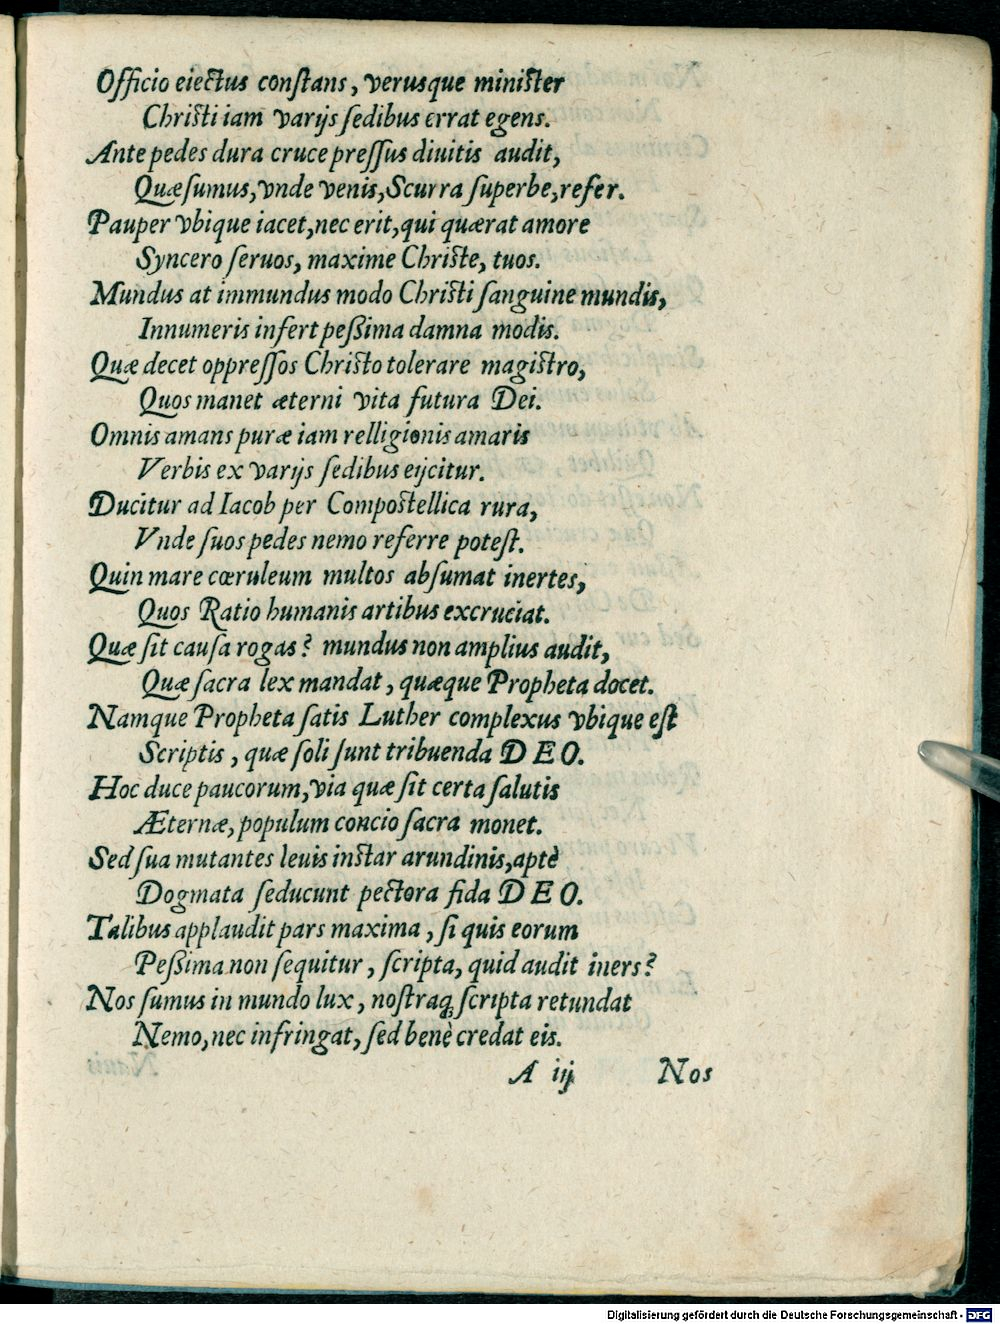 Officio eiectus conſtans, verusque miniſter
Chriſti iam varijs ſedibus errat egens.
Ante pedes dura cruce preſſus diuitis audit,
Quæſumus, vnde venis, Scurra ſuperbe, refer.
Pauper vbique iacet, nec erit, qui quærat amore
Syncero ſeruos, maxime Chriſte, tuos.
Mundus at immundus modo Chriſti ſanguine mundis,
Innumeris infert peßima damna modis.
Quæ decet oppreſſos Chriſto tolerare magiſtro,
Quos manet æterni vita futura Dei.
Omnis amans puræ iam relligionis amaris
Verbis ex varijs ſedibus eijcitur.
Ducitur ad Iacob per Compoſtellica rura,
Vnde ſuos pedes nemo referre poteſt.
Quin mare cœruleum multos abſumat inertes,
Quos Ratio humanis artibus excruciat.
Quæ ſit cauſa rogas? mundus non amplius audit,
Quæ ſacra lex mandat, quæque Propheta docet.
Namque Propheta ſatis Luther complexus vbique eſt
Scriptis, quæ ſoli ſunt tribuenda DEO.
Hoc duce paucorum, via quæ ſit certa ſalutis
Æternæ, populum concio ſacra monet.
Sed ſua mutantes leuis inſtar arundinis, aptè
Dogmata ſeducunt pectora fida DEO.
Talibus applaudit pars maxima, ſi quis eorum
Peßima non ſequitur, ſcripta, quid audit iners?
Nos ſumus in mundo lux, noſtraq; ſcripta retundat
Nemo, nec infringat, ſed benè credat eis.
A iij Nos
Digitalisierung gefördert durch die Deutsche Forschungsgemeinschaft - DFG